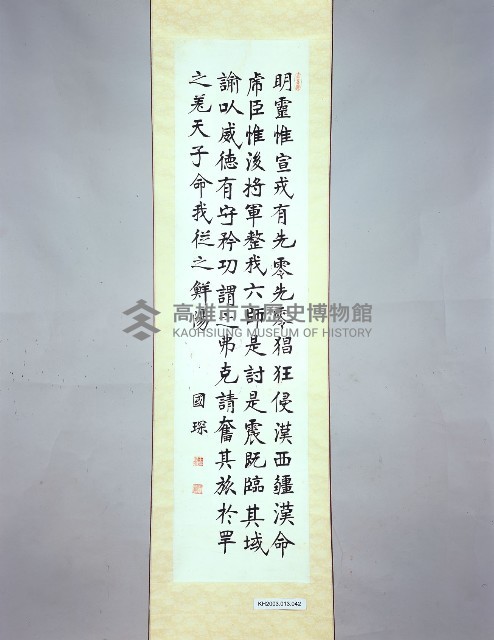 明靈惟宣戎有先零先零猖狂侵漢西疆漢命
虎臣惟後將軍整我六師是討是震既臨其域
諭以威德有守矜功謂之弗克請奮其旅於罕
之羌天子命我從之鮮陽
國琛
高雄市立歷史博物館
KAOHSIUNG MUSEUM OF HISTORY
KH2003.013.042